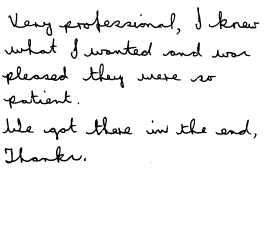 Very professional, I knew
what I wanted and was
pleased they were so
patient.
We got there in the end,
Thanks.